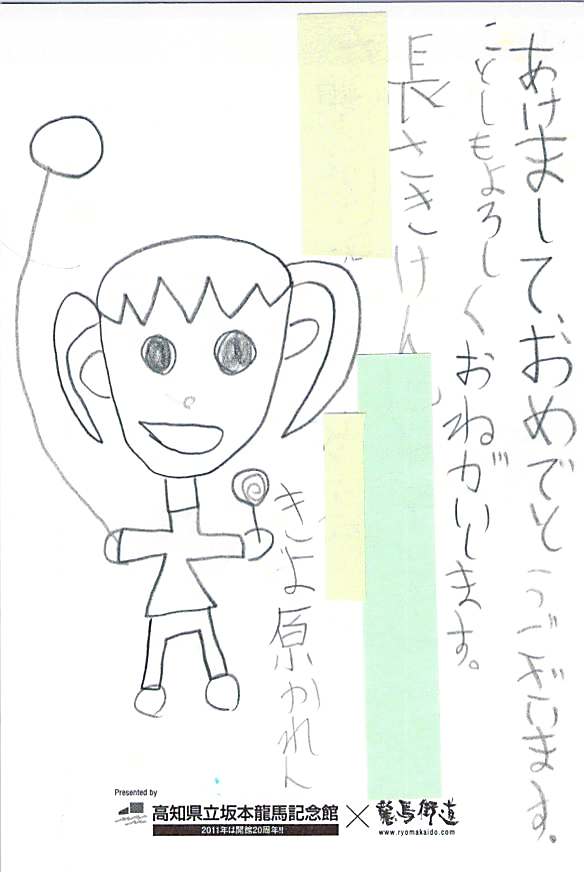 あけまして、おめでとうございます。
ことしもよろしくおねがいします。
長さきけん
きよ原かれん
Presented by
高知県立坂本龍馬記念館
2011年は開館20周年!!
×
龍馬街道
www.ryomakaido.com